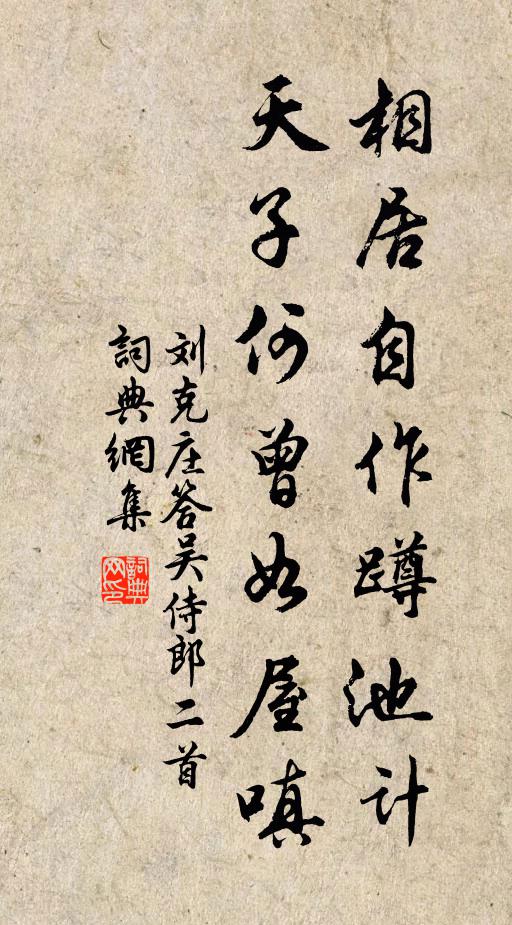 相居自作蹲池计
天子何曾如屋嗔
刘克庄答吴侍郎二首
詞典網集
詞典
网印